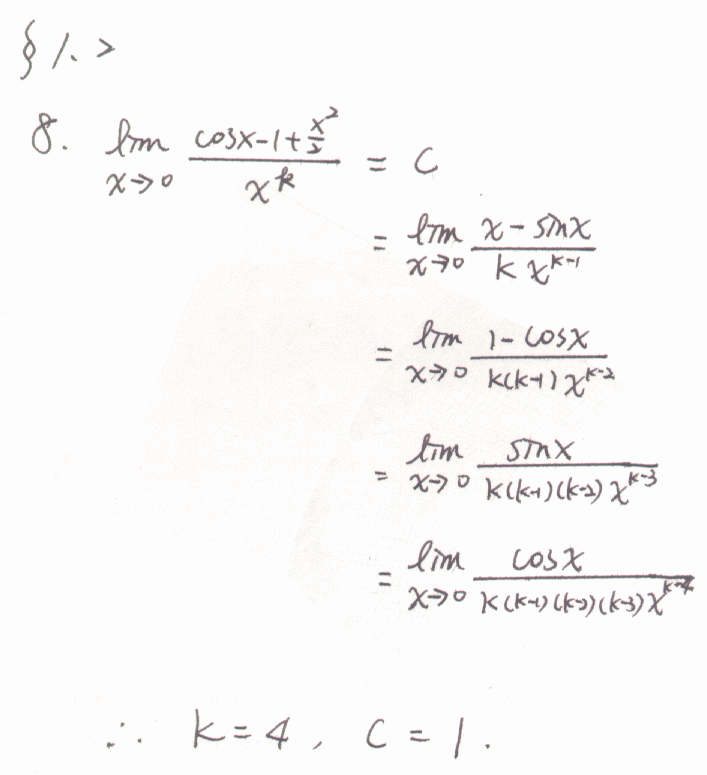 § 1.2
8. lim x→0 (cosx-1+x²/2)/(x^k) = C
= lim x→0 (x-sinx)/(k x^(k-1))
= lim x→0 (1-cosx)/(k(k-1)x^(k-2))
= lim x→0 (sinx)/(k(k-1)(k-2)x^(k-3))
= lim x→0 (cosx)/(k(k-1)(k-2)(k-3)x^(k-4))
∴ k=4, C=1.